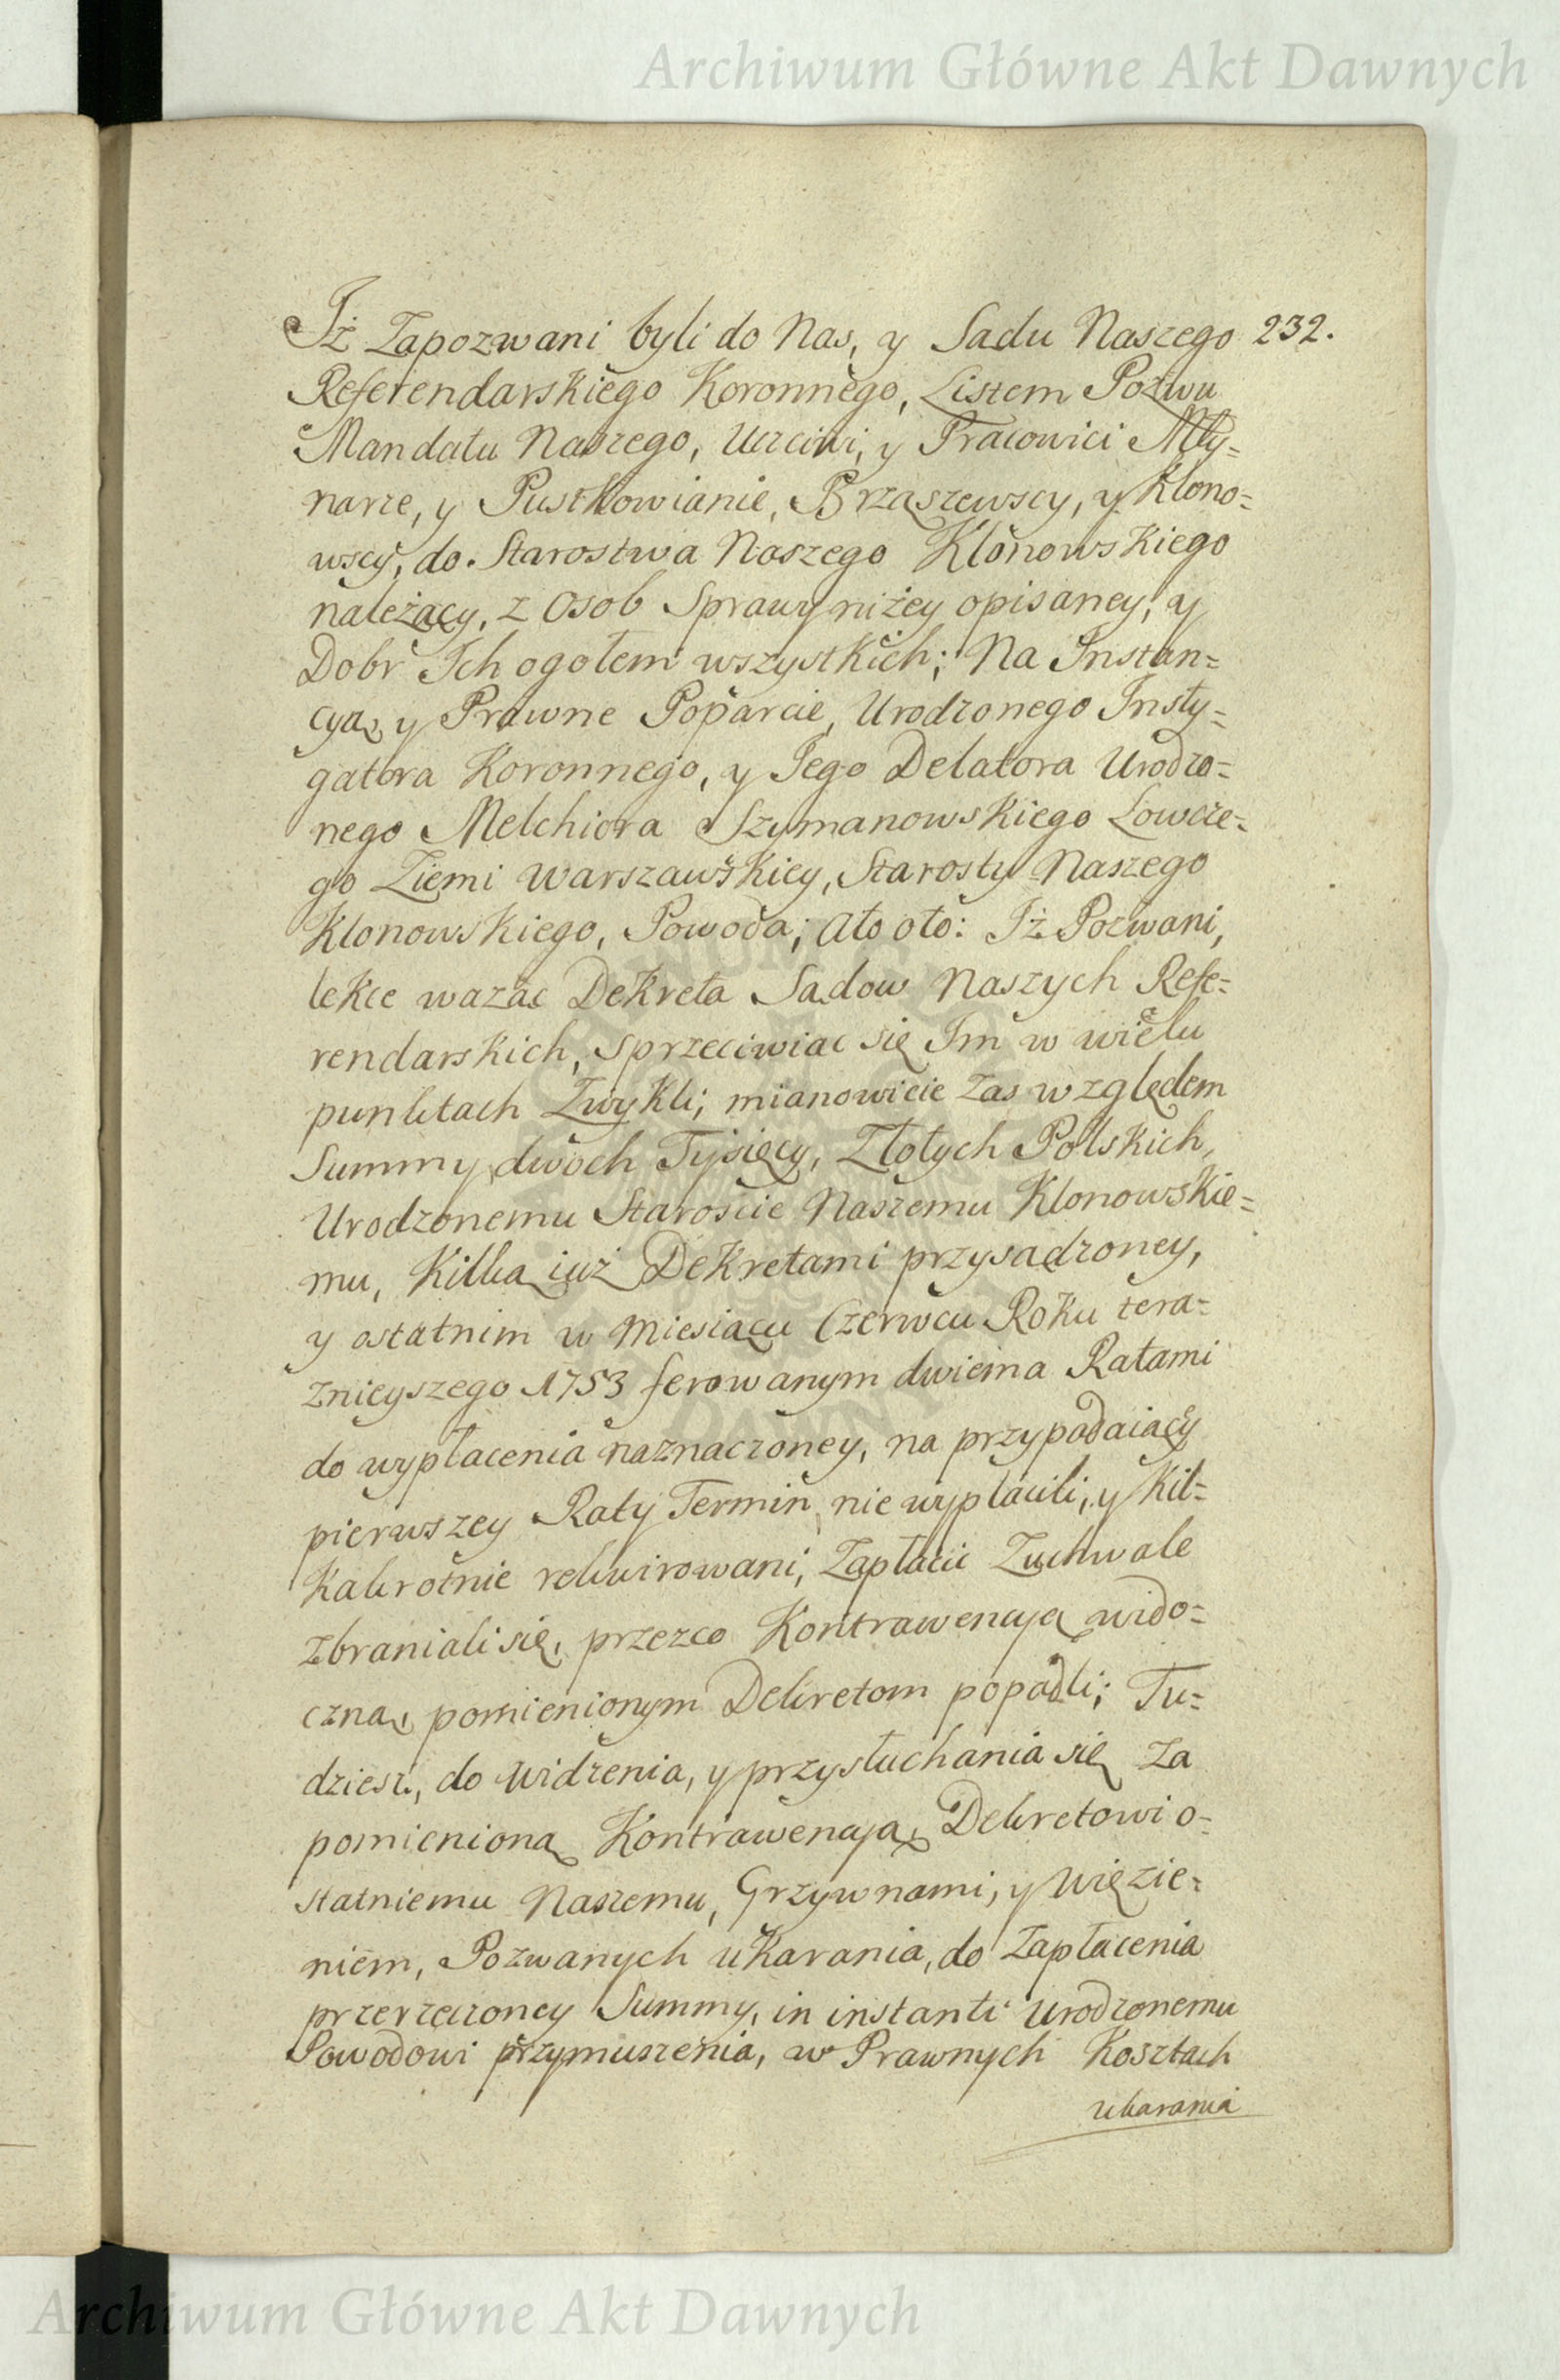 Archiwum Główne Akt Dawnych
Iż Zapozwani byli do Nas, y Sadu Naszego 232.
Referendarskiego Koronnego, Listem Pozwu
Mandatu Naszego, Uczciwi, y Pracowici Mły=
narze, y Pustkowianie, Brząszewscy, y Klono=
wscy, do Starostwa Naszego Klonowskiego
należący, z Osob Sprawy niżey opisaney, y
Dobr Ich ogołem wszystkich; Na Instan=
cyą, y Prawne Poparcie, Urodzonego Insty=
gatora Koronnego, y Jego Delatora Urodzo=
nego Melchiora Szymanowskiego Łowcze=
go Ziemi Warszawskiey, Starosty Naszego
Klonowskiego, Powoda; Ato oto: Iż Pozwani,
lekce ważąc Dekreta Sadow Naszych Refe=
rendarskich, Sprzeciwiac się Im w wielu
punktach Zwykli; mianowicie Zas względem
Summy dwoch Tysięcy, Złotych Polskich,
Urodzonemu Staroscie Naszemu Klonowskie=
mu, Kilką iuż Dekretami przysądzoney,
y ostatnim w Miesiącu Czerwcu Roku tera=
znieyszego 1753 ferowanym dwiema Ratami
do wypłacenia naznaczoney, na przypadaiący
pierwszey Raty Termin, nie wypłacili, y Kil=
kakrotnie rekwirowani, Zapłacic Zuchwale
zbraniali się, przezco Kontrawencyą wido=
czną, pomienionym Dekretom popadli; Tu=
dziesz, do widzenia, y przysłuchania się Za
pomienioną Kontrawencyą, Dekretowi o=
statniemu Naszemu, Grzywnami, y Więzie=
niem, Pozwanych ukarania, do Zapłacenia
przerzeczoney Summy, in instanti Urodzonemu
Powodowi przymuszenia, w Prawnych Kosztach
ukarania
Archiwum Główne Akt Dawnych